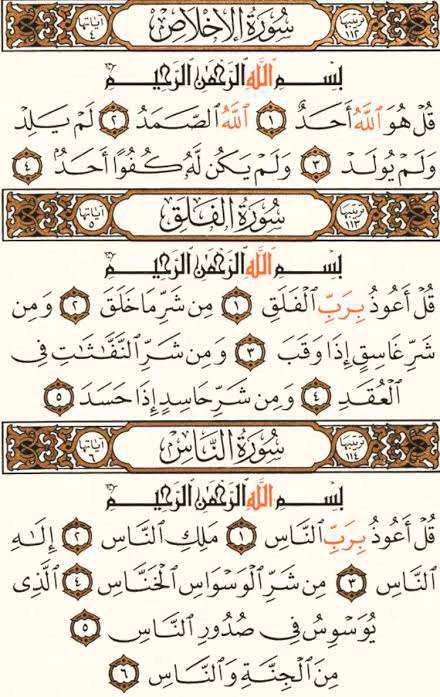 ترتيبها ١١٢ سُورَةُ الإِخْلَاصِ آياتها ٤
بِسْمِ اللَّهِ الرَّحْمَٰنِ الرَّحِيمِ
قُلْ هُوَ اللَّهُ أَحَدٌ ١ اللَّهُ الصَّمَدُ ٢ لَمْ يَلِدْ
وَلَمْ يُولَدْ ٣ وَلَمْ يَكُن لَّهُ كُفُوًا أَحَدٌ ٤
ترتيبها ١١٣ سُورَةُ الفَلَقِ آياتها ٥
بِسْمِ اللَّهِ الرَّحْمَٰنِ الرَّحِيمِ
قُلْ أَعُوذُ بِرَبِّ الْفَلَقِ ١ مِن شَرِّ مَا خَلَقَ ٢ وَمِن
شَرِّ غَاسِقٍ إِذَا وَقَبَ ٣ وَمِن شَرِّ النَّفَّٰثَٰتِ فِى
الْعُقَدِ ٤ وَمِن شَرِّ حَاسِدٍ إِذَا حَسَدَ ٥
ترتيبها ١١٤ سُورَةُ النَّاسِ آياتها ٦
بِسْمِ اللَّهِ الرَّحْمَٰنِ الرَّحِيمِ
قُلْ أَعُوذُ بِرَبِّ النَّاسِ ١ مَلِكِ النَّاسِ ٢ إِلَٰهِ
النَّاسِ ٣ مِن شَرِّ الْوَسْوَاسِ الْخَنَّاسِ ٤ الَّذِى
يُوَسْوِسُ فِى صُدُورِ النَّاسِ ٥
مِنَ الْجِنَّةِ وَالنَّاسِ ٦